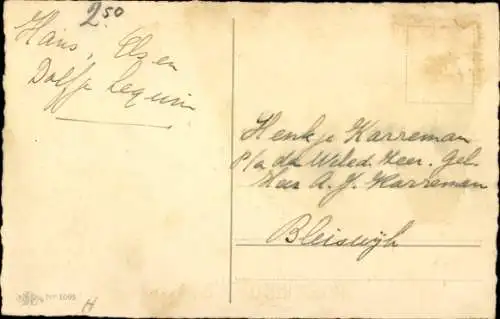 2.50
Hans, Els en
Dolfje Lequin
Henkje Karreman
p/a den Weled. Heer. Gel.
Heer A. J. Karreman
Bleiswijk
No 1095
H